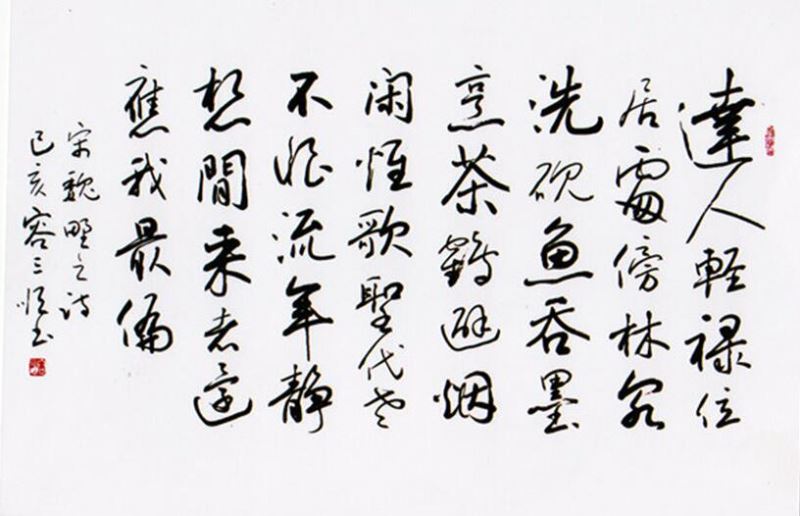 達人輕禄位
居處傍林泉
洗硯魚吞墨
烹茶鶴避烟
閑惟歌聖代老
不恨流年靜
想間来者還
應我最偏
宋魏野之诗
己亥容三书